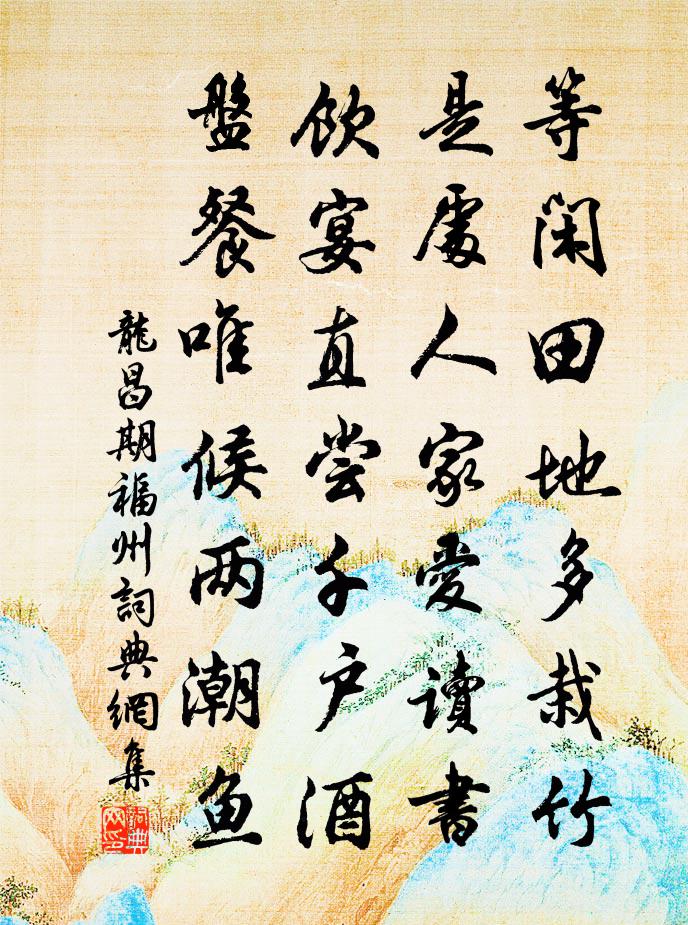 等闲田地多栽竹
是處人家愛讀書
飲宴直尝千户酒
盤餐唯候两潮鱼
龍昌期福州詞典網集
詞典网印